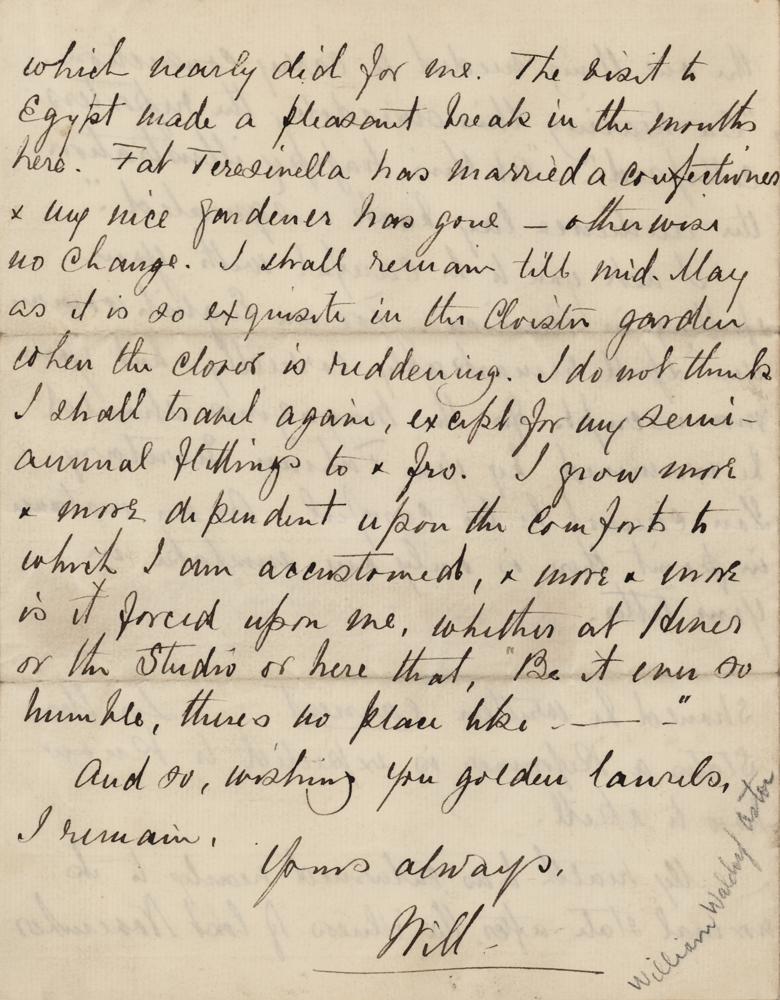 which nearly did for me. The visit to
Egypt made a pleasant break in the months
here. Fat Teresinella has married a confectioner
& my nice gardener has gone — otherwise
no change. I shall remain till mid-May
as it is so exquisite in the Cloister garden
when the clover is reddening. I do not think
I shall travel again, except for my semi-
annual flittings to & fro. I grow more
& more dependent upon the comforts to
which I am accustomed, & more & more
is it forced upon me, whether at Hever
or the Studio or here that, "Be it ever so
humble, theres no place like ——— - "
And so, wishing you golden laurels,
I remain.
Yours always.
Will -
William Waldorf Astor